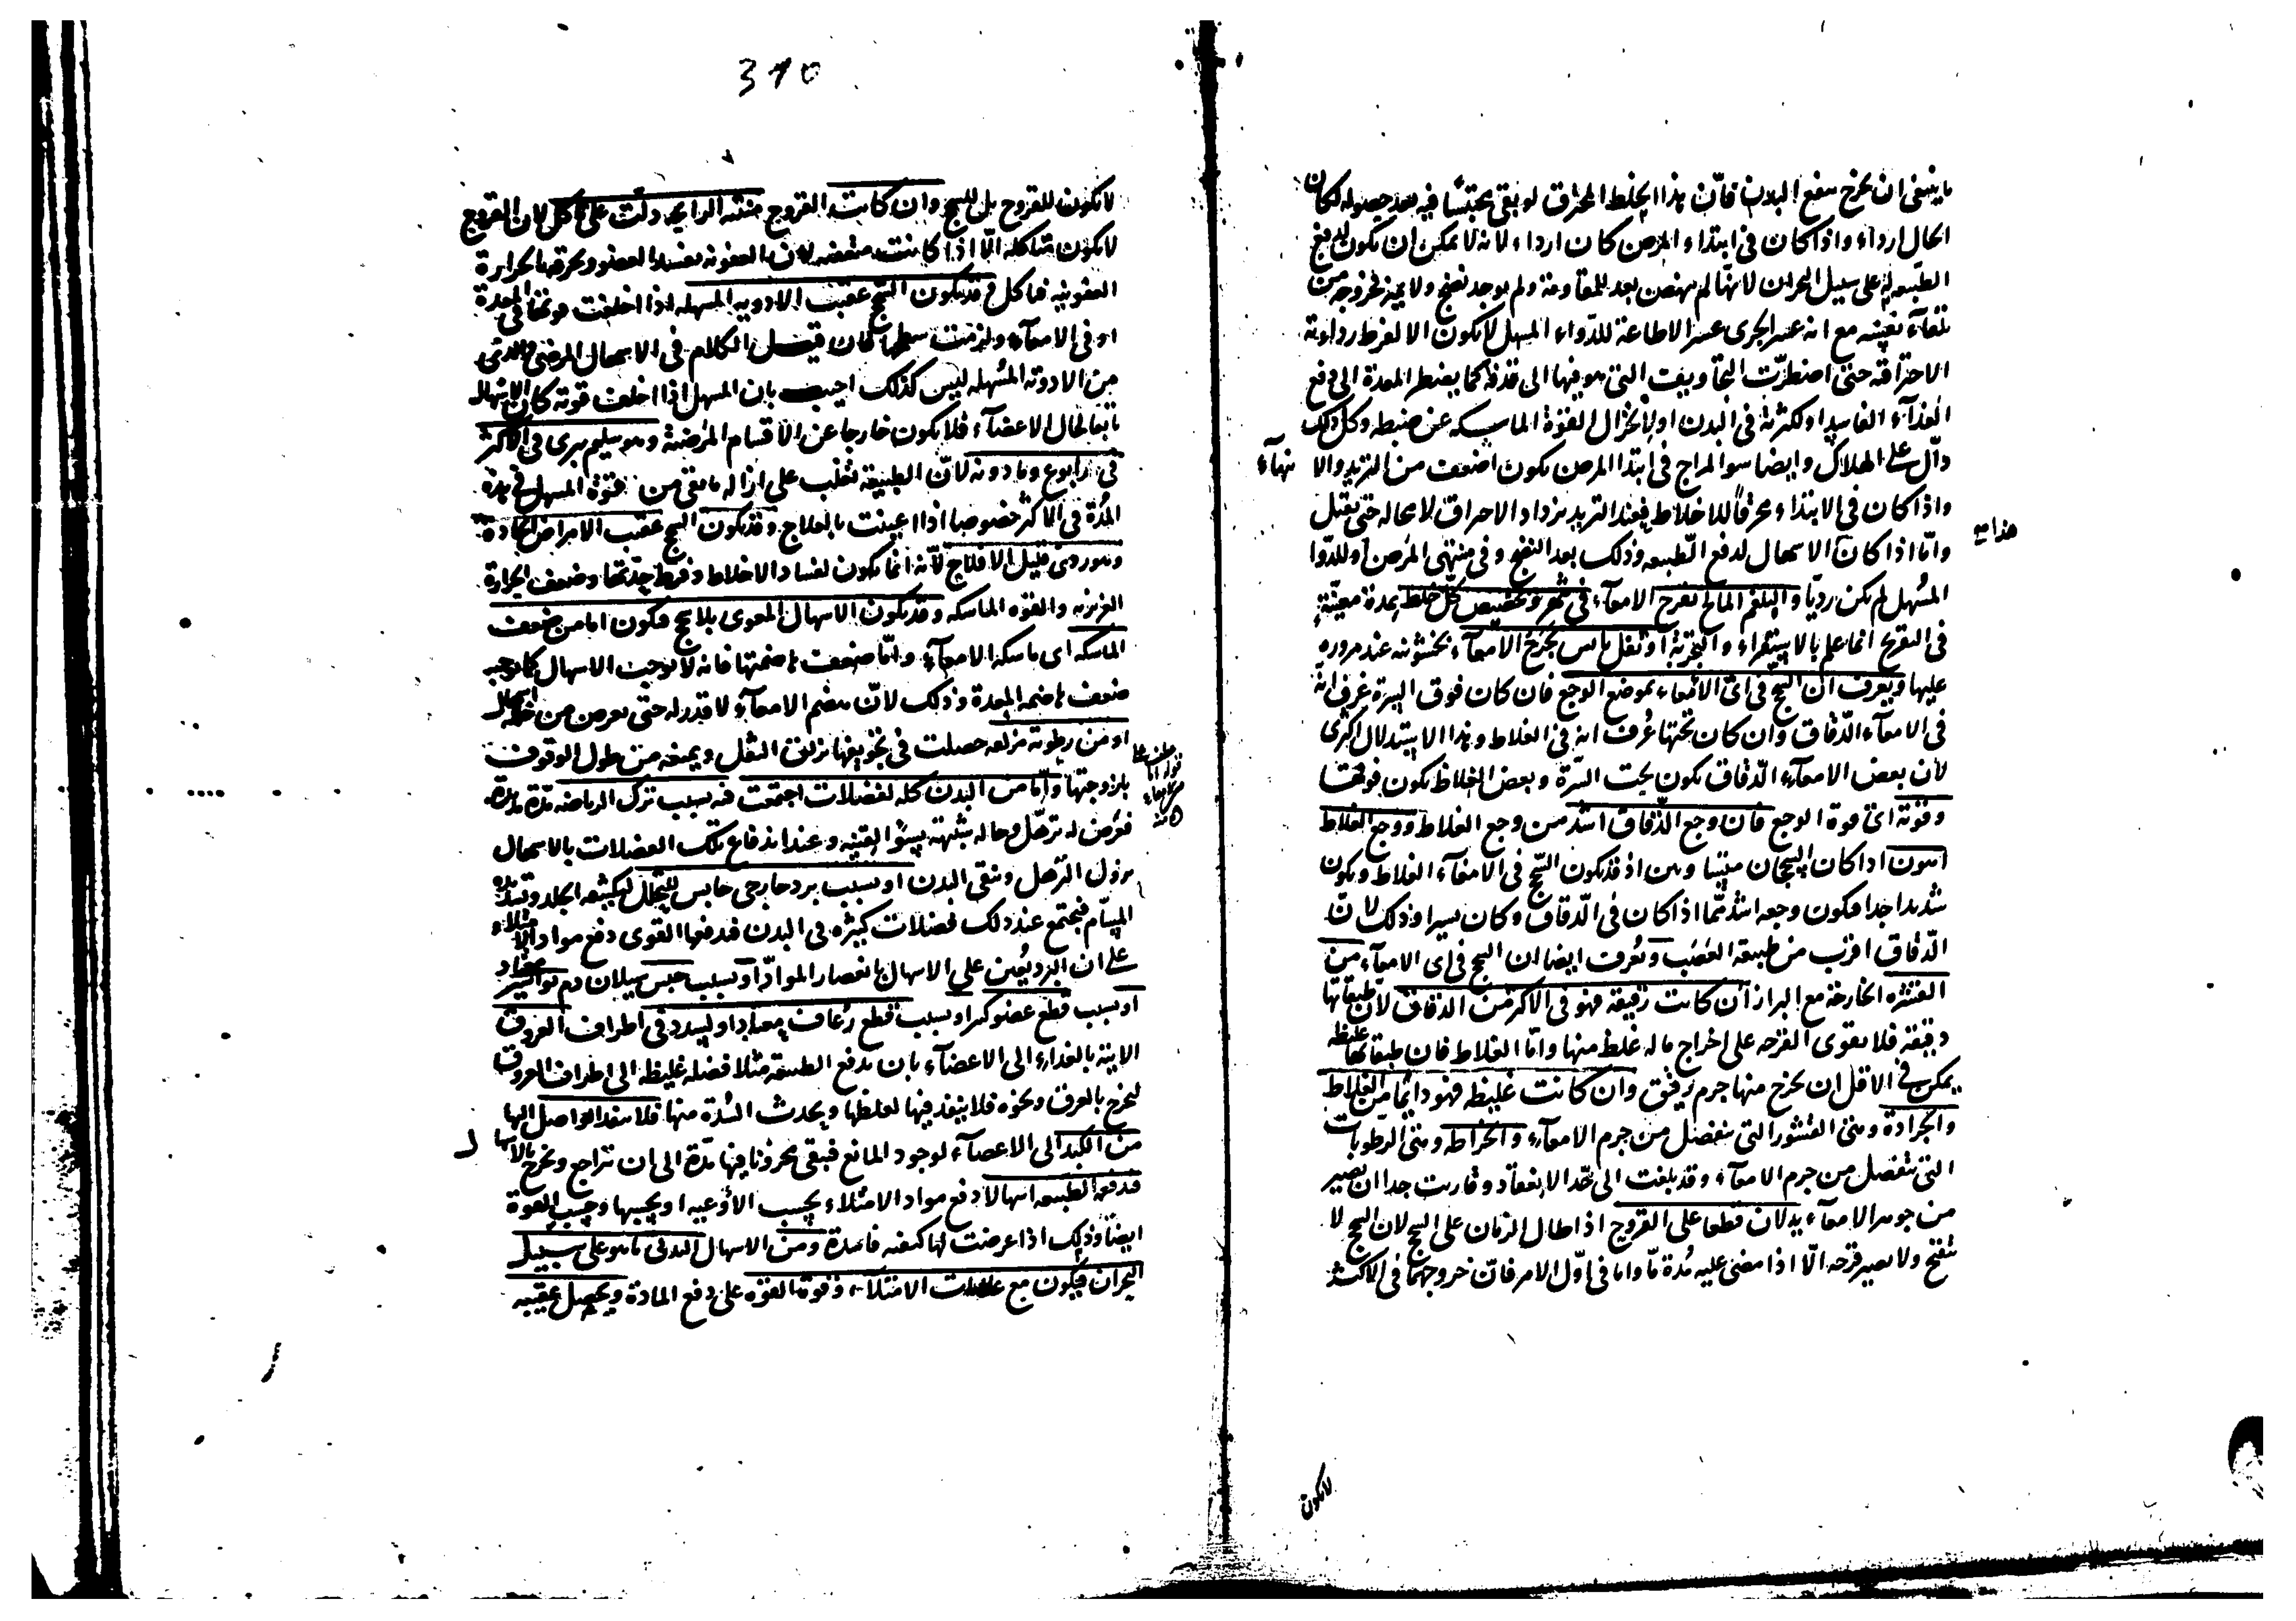 ما ينبغى ان يخرج ينفع البدن فانّ هذا الخلط المحترق لو بقى محتبسًا فيه بعد حصوله لكان
الحال ارداء واذا كان فى ابتداء المرض كان ارداء لانه لا يمكن ان يكون لدفع
الطبيعة على سبيل البحران لانها لم ينهض بعد للمقاومة ولم يوجد نضج ولا يميز فخروجه من
تلقاء نفسه مع انه عسر الجرى عسر الاطاعة للدواء المسهل لا يكون الا لفرط رداءته
الاحتراقية حتى اضطرّت التجاويف التى هو فيها الى قذفه كما يضطر المعدة الى دفع
الغذآء الفاسد او لكثرته فى البدن او لانخزال القوّة الماسكه عن ضبطه وكل ذلك
دآل على الهلاك وايضا سوالمزاج فى ابتدا المرض يكون اضعف من التزيد والا نتهآء
واذا كان فى الابتداء محرقًا للاخلاط فعند التزيد يزداد الاحراق لا محاله حتى يقتل
وامّا اذا كان الاسهال لدفع الطبيعه وذلك بعد النضج وفى منتهى المرض او للدوا
المسهل لم يكن رديّا والبلغم المالح يقرح الامعآء فى شهر وتخصيص كلّ خلط بمدة معينّة
فى التقريح انما علم بالاستقراء والتجربة او ثفل يابس يجرح الامعآء بخشونته عند مروره
عليها ويعرف انّ السحج فى اىّ الامعاء بموضع الوجع فان كان فوق السرة عرف انه
فى الامعآء الدقاق وان كان تحتها عُرف انه فى الغلاظ وهذا الاستدلال اكثرى
لان بعض الامعآء الدقاق يكون تحت السّرة وبعض الغلاظ يكون فوقها
وقوته اى قوة الوجع فان وجع الدقاق اشد من وجع الغلاظ ووجع الغلاظ
اهون اذا كان السحجان وهن اذ قد يكون السّحج فى الامعآء الغلاظ ويكون
شديدا جدا فيكون وجعه اشد ممّا اذا كان فى الدقاق وكان يسيرا وذلك لان
الدقاق اقرب من طبيعة العَصَب وتُعرف ايضا ان السحج فى اى الامعآء من
القشره الخارجة مع البراز ان كانت رقيقة فهو فى الاكثر من الدقاق لان طبقاتها
دقيقة فلا يقوى القرحه على اخراج ما له غلظ منها وامّا الغلاظ فان طبقاتها غليظه
يمكن فى الاقل ان يخرج منها جرم رقيق وان كانت غليظه فهو دايمًا من الغلاظ
والجرادة وهى القشور التى تنفصل من جرم الامعآء والخراطه وهى الرطوبات
التى تنفصل من جرم الامعآء وقد بلغت الى حدّ الانعقاد وقاربت جدا ان يصير
من جوهر الامعآء يدلان قطعا على القروح اذا طال الزمان على السحج لان السحج لا
يتقيح ولا يصير قرحه الّا اذا مضى عليه مُدة مّا واما فى اوّل الامر فانّ خروجهما فى الاكثر
لا يكون
310
لا يكون للقروح بل للسحج وان كانت القروح منتنه الرايحه دلّت على تاكل لان القروج
لا يكون متاكله الّا اذا كانت متعفنه لان العفونه تفسد العضو ويحرقها الحرارة
العفونيه فياكل وقد يكون السّحج عقيب الادويه المسهله اذا اخلفت قوتها فى المعدة
او فى الامعآء ولزمت سطحها فان قيـل الكلام فى الاسهال المرضى والذى
من الادوية المسهله ليس كذلك اجيب بان المسهل اذا اخلف قوته كان الاسهال
تابعا لحال الاعضآء فلا يكون خارجا عن الاقسام المرضية وهو سليم يبرى فى الاكثر
فى رابوع وما دونه لانّ الطبيعة تغلب على ازاله ما بقى من قوة المسهل فى هذه
المُدة فى الاكثر خصوصا اذا اعينت بالعلاج وقد يكون السحج عقب الامراض الحادة
وهو ردى قليل الافلاح لانّه انما يكون لفساد الاخلاط وفرط حدّتها وضعف الحرارة
الغريزيه والقوّه الماسكه وقد يكون الاسهال المعوى بلا سحج فيكون اما من ضعف
الماسكه اى ماسكه الامعآء وامّا ضعف هاضمتها فانه لا يوجب الاسهال كما يوجبه
ضعف هاضمه المعدة وذلك لانّ هضم الامعآء لا قدر له حتى يعرض من خلله اسهال
او من رطوبه مزلقه حصلت فى تجويفها يزلق الثفل ويمنعه من طول الوقوف
بلزوجتها وامّا من البدن كله لفضلات اجتمعت فيه بسبب ترك الرياضه مدّة مديدة
فعرض له ترهّل وحاله شبيهة بسؤ القنيه وعند اندفاع تلك الفضلات بالاسهال
يزول الترهل وينقى البدن او بسبب برد خارجى حابس للتحلل لتكثيفه الجلد وتسديده
المسّام فيجتمع عند ذلك فضلات كثيره فى البدن فدفعها القوى دفع مواد الامتلاء
على ان البرد يُعين على الاسهال بانعصار الموادّ او بسبب حبس سيلان دم بواسير معتاد
او بسبب قطع عضو كبير او بسبب قطع رُعاف معتاد او لسدد فى اطراف العروق
الاتية بالغذاء الى الاعضآء بان يدفع الطبيعة مثلا فضله غليظه الى اطراف العروق
ليخرج بالعرق ونحوه فلا ينفذ فيها لغلظها ويحدث السُدّة منها فلا ينفذ الواصل اليها
من الكبد الى الاعضآء لوجود المانع فيبقى محزونا فيها مدّة الى ان تتراجع وتخرج بالاسهال
فدفعه الطبيعه اسهالا دفع مواد الامتلاء بحسب الأوعيه او بحسبها وحسب القوة
ايضا وذلك اذا عرضت لها كيفيه فاسدة ومن الاسهال البدنى ما هو على سبيل
البحران فيكون مع علامات الامتلآء وقوة القوّه على دفع المادة ويحصل عقيبه